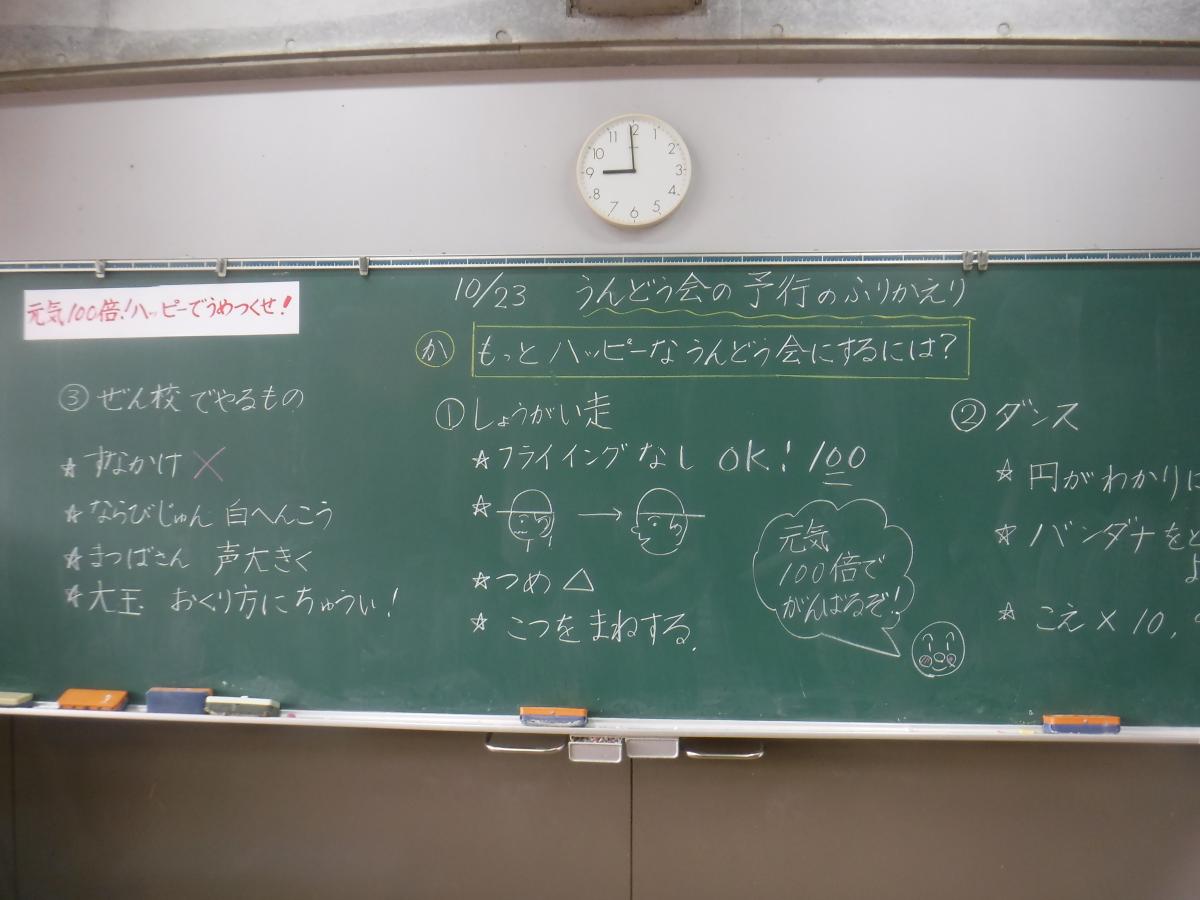 元気100倍!ハッピーでうめつくせ!
10/23 うんどう会の予行のふりかえり
か もっとハッピーなうんどう会にするには?
③ ぜん校でやるもの
☆ すなかけ ×
☆ ならびじゅん 白へんこう
☆ まつばさん 声大きく
☆ 大玉 おくり方にちゅうい!
① しょうがい走
☆ フライイングなし OK! 100
☆ →
☆ つめ △
☆ こつをまねする.
元気
100倍で
がんばるぞ!!
② ダンス
☆ 円がわかりに
☆ バンダナを
☆ こえ×10,
12
1
2
3
4
5
6
7
8
9
10
11